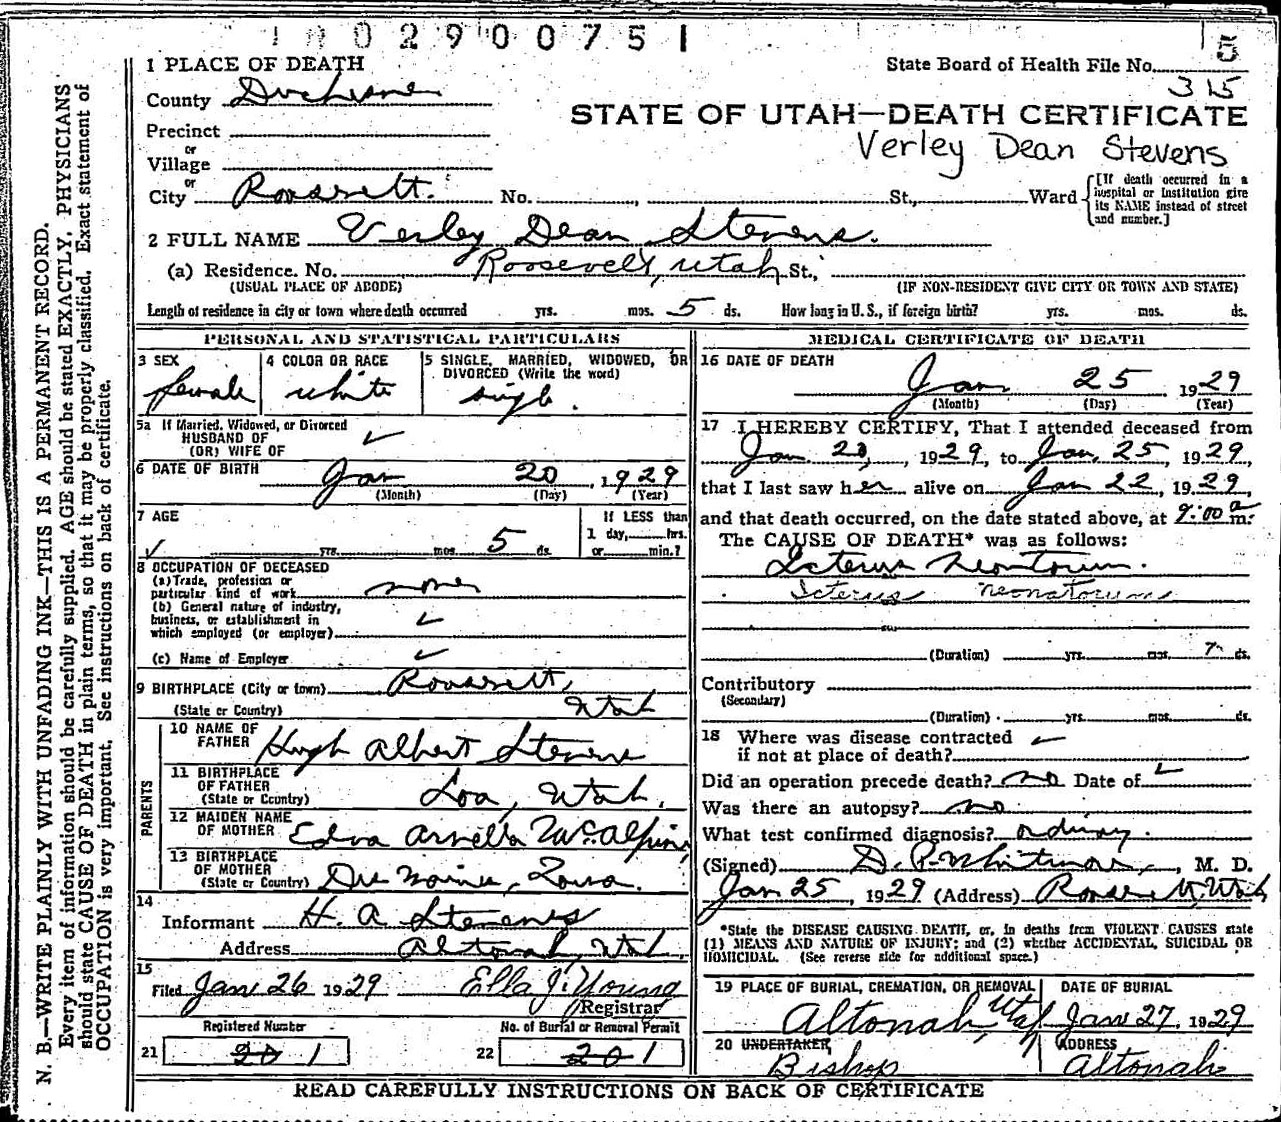 1 0 0 2 9 0 0 7 5 1
5
1 PLACE OF DEATH
State Board of Health File No.
315
County Duchesne
STATE OF UTAH—DEATH CERTIFICATE
Precinct
Verley Dean Stevens
or
Village
or
City Roosevelt. No. , St., Ward
[If death occurred in a hospital or institution give its NAME instead of street and number.]
2 FULL NAME Verley Dean Stevens.
(a) Residence. No. Roosevelt, Utah St.,
(USUAL PLACE OF ABODE) (IF NON-RESIDENT GIVE CITY OR TOWN AND STATE)
Length of residence in city or town where death occurred yrs. mos. 5 ds. How long in U. S., if foreign birth? yrs. mos. ds.
PERSONAL AND STATISTICAL PARTICULARS
3 SEX
female
4 COLOR OR RACE
white
5 SINGLE, MARRIED, WIDOWED, OR
DIVORCED (Write the word)
single.
5a If Married, Widowed, or Divorced
HUSBAND OF
(OR) WIFE OF
6 DATE OF BIRTH Jan 20, 1929
(Month) (Day) (Year)
7 AGE
yrs. mos. 5 ds.
If LESS than
1 day, hrs.
or min.?
8 OCCUPATION OF DECEASED
(a) Trade, profession or
particular kind of work none
(b) General nature of industry,
business, or establishment in
which employed (or employer)
(c) Name of Employer
9 BIRTHPLACE (City or town) Roosevelt,
(State or Country) Utah
PARENTS
10 NAME OF
FATHER Hugh Albert Stevens
11 BIRTHPLACE
OF FATHER
(State or Country) Loa, Utah.
12 MAIDEN NAME
OF MOTHER Edva Arvella McAlpine
13 BIRTHPLACE
OF MOTHER
(State or Country) Des Moines, Iowa.
14
Informant H. A Stevens
Address Altonah, Utah.
15
Filed Jan 26 1929 Ella J. Young
Registrar
Registered Number No. of Burial or Removal Permit
21 20 1 22 20 1
MEDICAL CERTIFICATE OF DEATH
16 DATE OF DEATH
Jan 25 1929
(Month) (Day) (Year)
17 I HEREBY CERTIFY, That I attended deceased from
Jan 20, , 1929, to Jan. 25, 1929,
that I last saw her alive on Jan 22, 1929,
and that death occurred, on the date stated above, at 9:00 a m.
The CAUSE OF DEATH* was as follows:
Icterus Neontorum.
Icterus neonatorum
(Duration) yrs. mos. ds.
Contributory
(Secondary)
(Duration) yrs. mos. ds.
18 Where was disease contracted
if not at place of death?
Did an operation precede death? no Date of
Was there an autopsy? no
What test confirmed diagnosis? ordinary.
(Signed) D. P. Whitmore, M. D.
Jan 25, 1929 (Address) Roosevelt, Utah
*State the DISEASE CAUSING DEATH, or, in deaths from VIOLENT CAUSES state
(1) MEANS AND NATURE OF INJURY; and (2) whether ACCIDENTAL, SUICIDAL OR
HOMICIDAL. (See reverse side for additional space.)
19 PLACE OF BURIAL, CREMATION, OR REMOVAL
Altonah, Utah
DATE OF BURIAL
Jan 27, 1929
20 UNDERTAKER
Bishop
ADDRESS
Altonah
READ CAREFULLY INSTRUCTIONS ON BACK OF CERTIFICATE
N. B.—WRITE PLAINLY WITH UNFADING INK—THIS IS A PERMANENT RECORD.
Every item of information should be carefully supplied. AGE should be stated EXACTLY. PHYSICIANS
should state CAUSE OF DEATH in plain terms, so that it may be properly classified. Exact statement of
OCCUPATION is very important. See instructions on back of certificate.